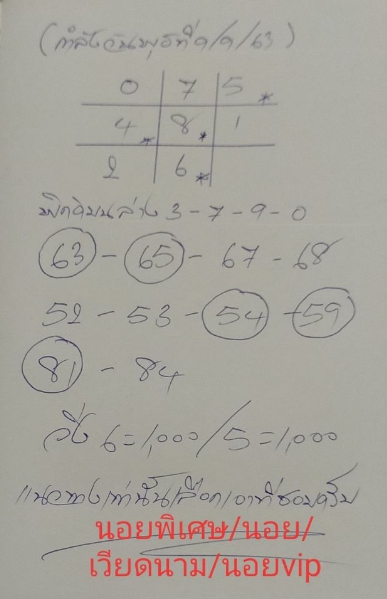 (กำลังวันพุธที่ 9/9/63)
0 7 5*
4* 8* 1
2 6*
พิกัดบนล่าง 3-7-9-0
63 - 65 - 67 - 68
52 - 53 - 54 - 59
81 - 84
วิ่ง 6=1,000/5=1,000
แนวทางเท่านั้นเลือกเอาที่ชอบครับ
นอยพิเศษ/นอย/
เวียดนาม/นอยvip